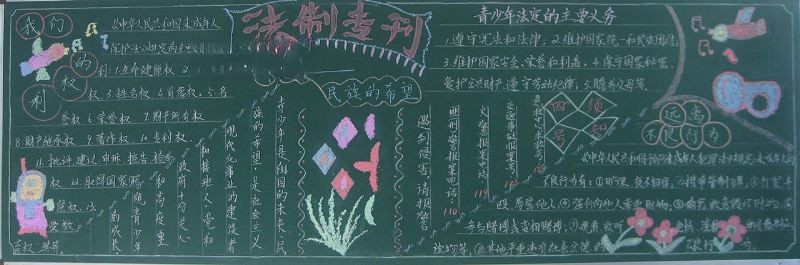 我们的权利
《中华人民共和国未成年人
保护法》规定的主要
权利：1.生命健康权 2.
权 3.姓名权 4.肖像权 5.名
誉权 6.荣誉权 7.财产所有权
8.财产继承权 9.著作权 10.专利权
11.批评、建议、申诉、控告、检举
权 12.取得国家赔
法制专刊
民族的希望
青少年是祖国的未来、民
族的希望，是社会主义
现代化事业的建设者
和接班人，党和
政府十分关心
和高度重
视青少年
的成长
遇到侵害请报警
匪刑警报案电话：110
火警报案电话：119
交通事故报案电话：122
急救中心求救号：120
四号须知
青少年法定的主要义务
1.遵守宪法和法律；2.维护国家统一和民族团结；
3.维护国家安全、荣誉和利益；4.保守国家秘密、
爱护公共财产、遵守劳动纪律；5.赡养父母等。
远离不良行为
《中华人民共和国预防未成年人犯罪法》规定未成年人的
不良行为有：①旷课、夜不归宿；②携带管制刀具；③打架斗
殴、辱骂他人；④强行向他人索要财物；
参与赌博或变相赌博；⑦观看、收听
读物等；⑨其他严重违背社会公德的
不良行为。